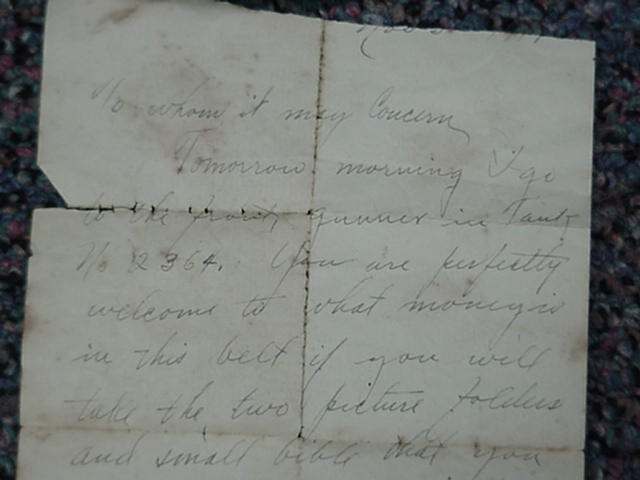 To whom it may Concern
Tomorrow morning I go
to the front, gunner in Tank
No 2364. You are perfectly
welcome to what money is
in this belt if you will
take the two picture folders
and small bible that you